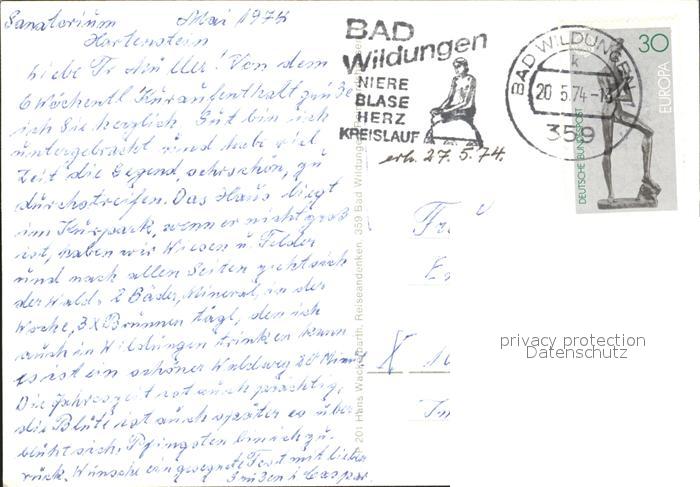 Sanatorium Mai 1974
Hartenstein
Liebe Fr. Müller! Von dem
6 Wöchentl Kuraufenthalt grüße
ich Sie herzlich. Gut bin ich
untergebracht und habe viel
Zeit die Gegend, sehr schön, zu
durchstreifen. Das Haus liegt
im Kurpark, wenn er nicht groß
ist, haben wir Wiesen u. Felder
und nach allen Seiten zieht sich
der Wald. 2 Bäder, Mineral, in der
Woche, 3 x Brunnen tägl, den ich
auch in Wildungen trinken kann
es ist ein schöner Waldweg 20 Minut
Die Jahreszeit ist auch prächtig,
die Blüte ist auch später es über
blüht sich. Pfingsten bin ich zu-
rück. Wünsche ein gesegnetes Fest mit lieben
Grüßen i Caspar
BAD
Wildungen
NIERE
BLASE
HERZ
KREISLAUF
BAD WILDUNGEN
k
20 5.74 -18
359
30
EUROPA
DEUTSCHE BUNDESPOST
erh. 27.5.74.
201 Hans Wackerbarth, Reiseandenken, 359 Bad Wildungen
Fr
E
X
privacy protection
Datenschutz